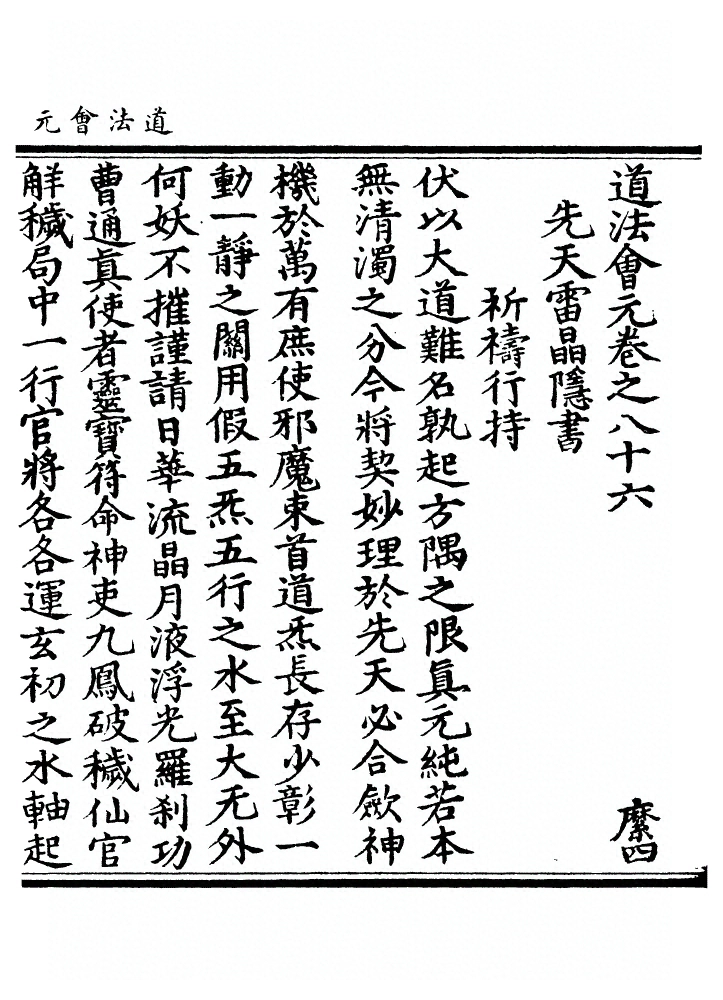 道法會元
道法會元卷之八十六 縻四
先天雷晶隱書
祈禱行持
伏以大道難名孰起方隅之限眞元純若本
無清濁之分今將契妙理於先天必合歛神
機於萬有庶使邪魔束首道炁長存少彰一
動一靜之關用假五炁五行之水至大无外
何妖不摧謹請日華流晶月液浮光羅刹功
曹通眞使者靈寶符命神吏九鳳破穢仙官
解穢局中一行官將各各運玄初之水軸起